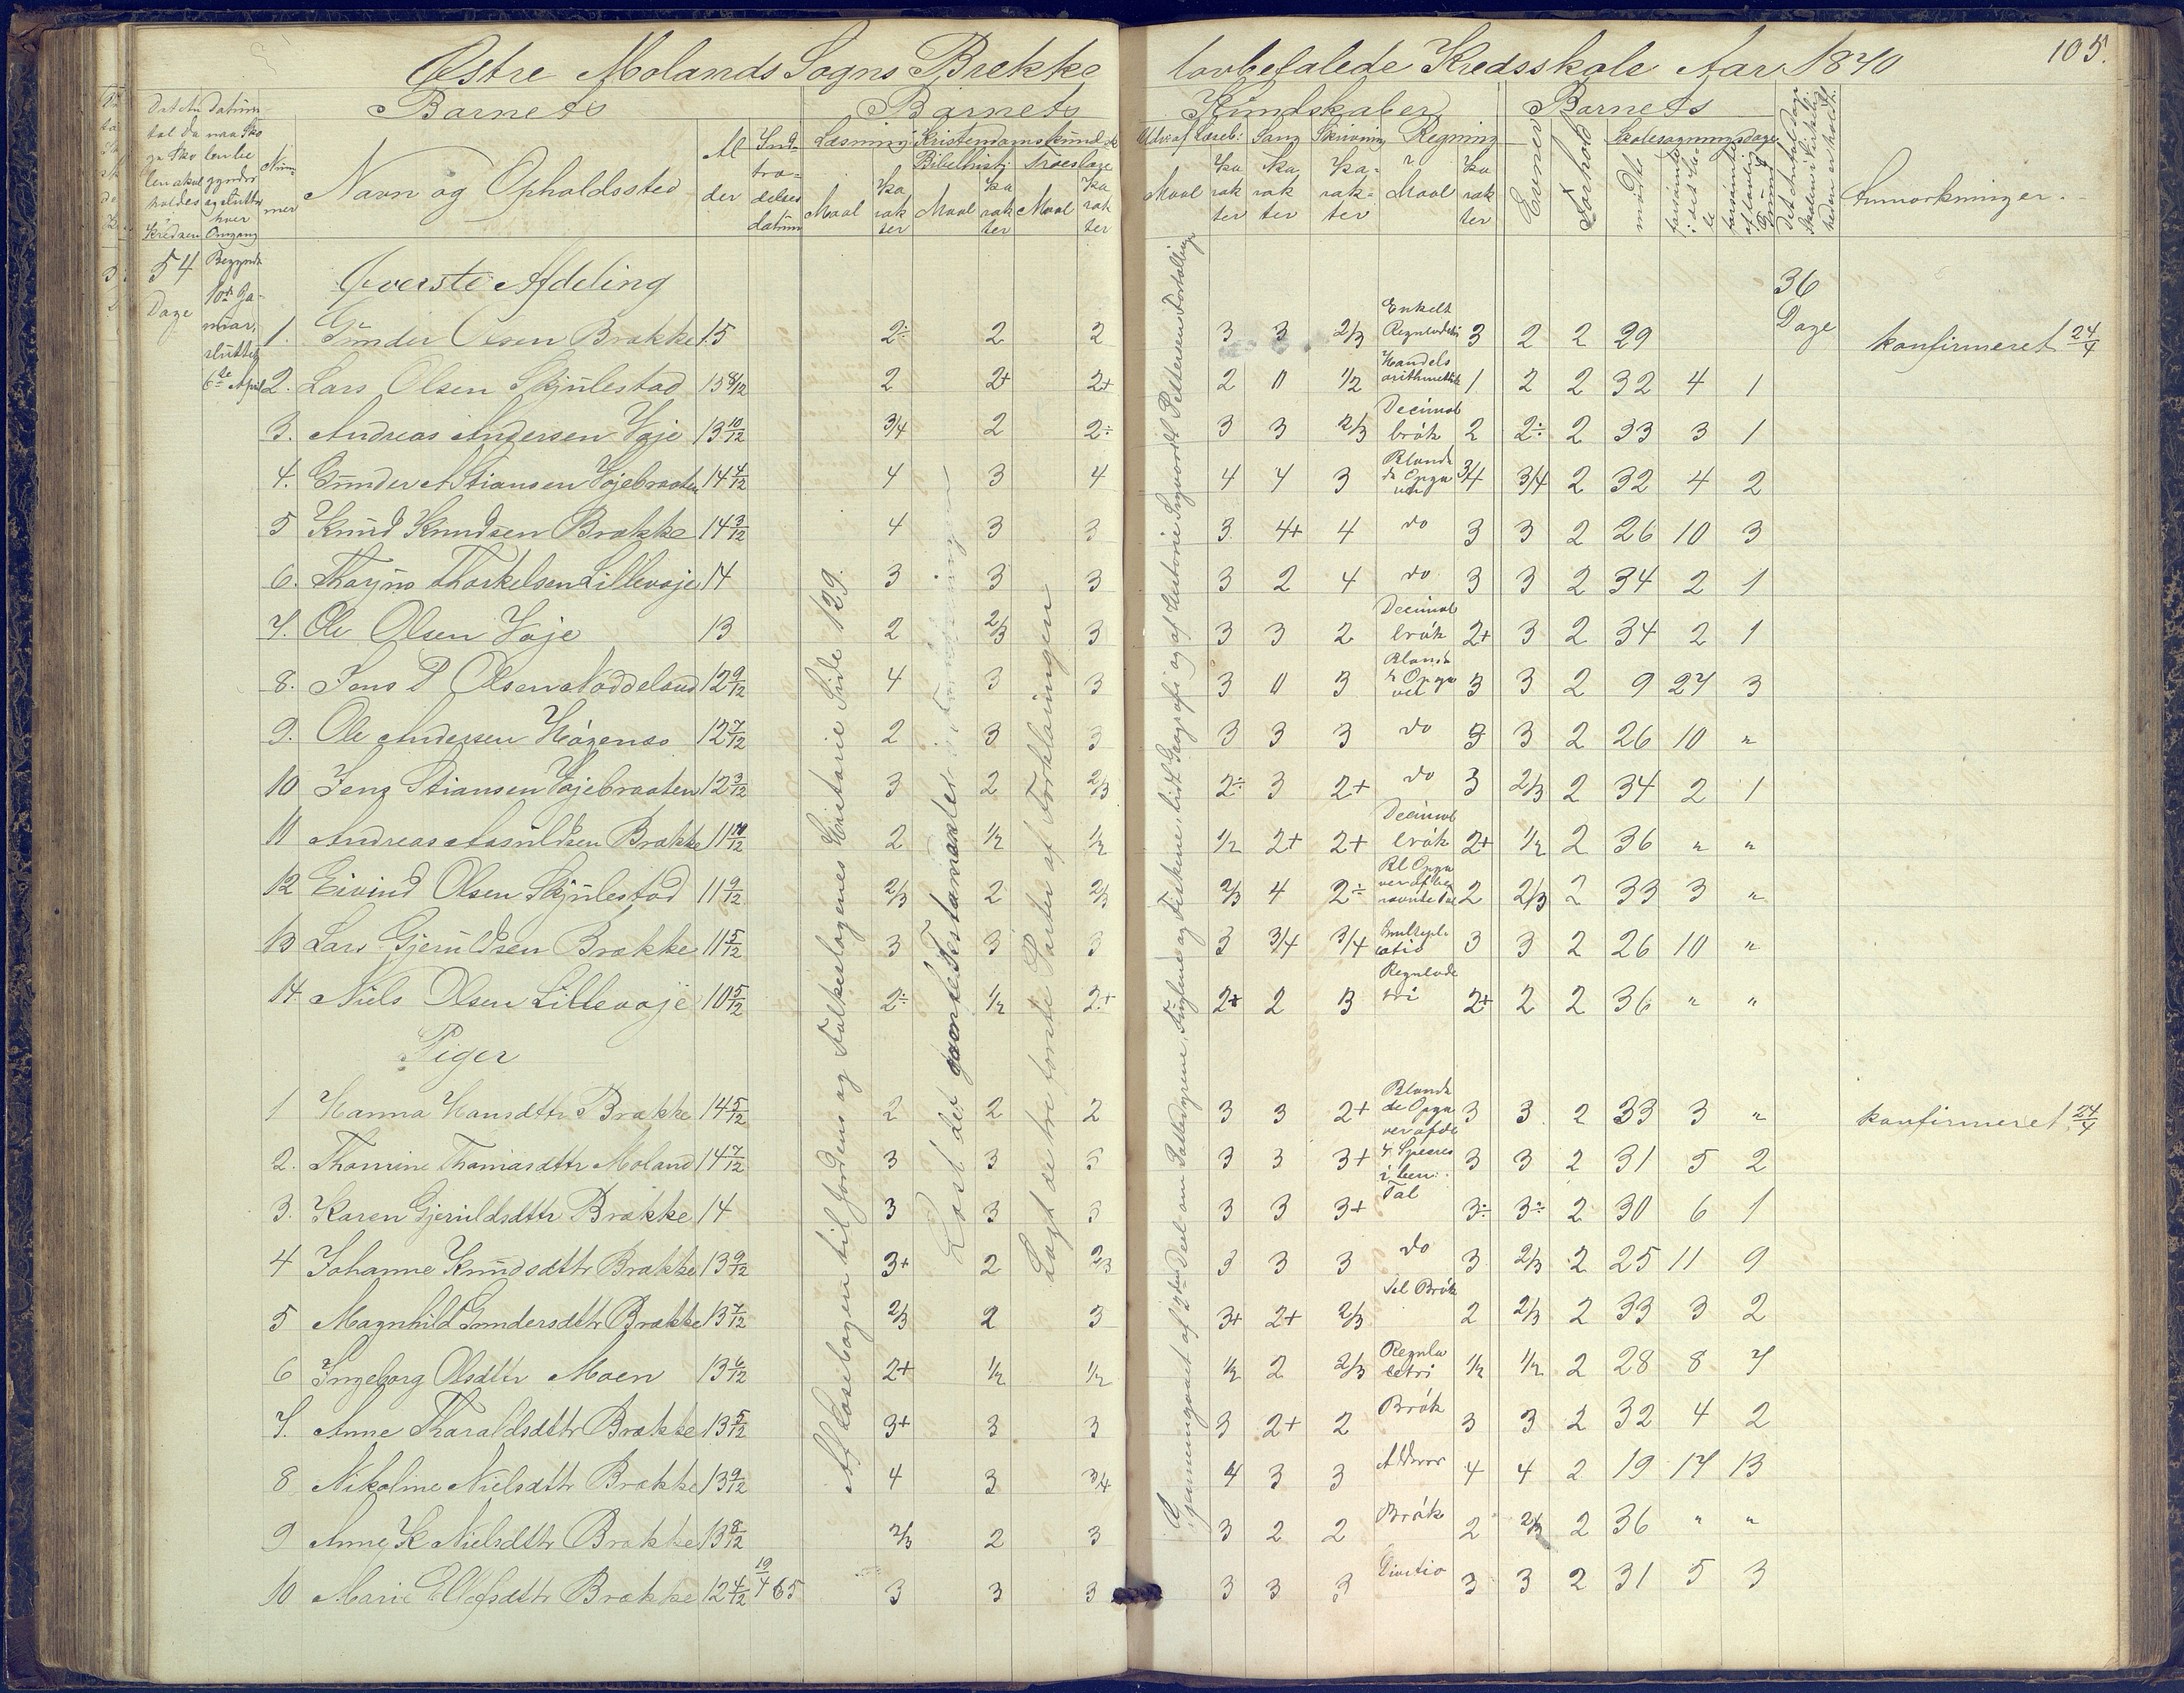 Østre Molands Sogns Brekke lovbefalede Kredsskole Aar 1870 105.
Barnets Barnets Kundskaber Barnets
Nummer Navn og Opholdssted Alder Indtrædelsesdatum Læsning Kristendomskundsk. Udv. af Læseb: Sang Skrivning Regning Evner Forhold Skolesøgningsdage Anmærkninger.
Bibelhist: Troeslære
Maal Karakter Maal Karakter Maal Karakter Maal Karakter Karakter Karakter Maal Karakter mødte
54 Dage Begyndt 10de Januar, sluttet 6te April
Øverste Afdeling 36 Dage
1. Gunder Olsen Brække 15 2÷ 2 2 3 3 2/3 Enkelt Reguladetri 3 2 2 29 konfirmeret 24/4
2. Lars Olsen Skjulestad 15 8/12 2 2+ 2+ 2 " 1/2 Handels arithmetik 1 2 2 32 4 1
3. Andreas Andersen Vaje 13 10/12 3/4 2 2÷ 3 3 2/3 Decimal brøk 2 2÷ 2 33 3 1
4. Gunder A Stiansen Vajebraaten 14 4/12 4 3 4 4 4 3 Blandede Opgaver 3/4 3/4 2 32 4 2
5 Knud Knudsen Brække 14 3/12 4 3 3 3 4+ 4 do 3 3 2 26 10 3
6. Thorjus Thorkelsen Lillevaje 14 3 3 3 3 2 4 do 3 3 2 34 2 1
7. Ole Olsen Vaje 13 2 2/3 3 3 3 2 Decimal brøk 2+ 3 2 34 2 1
8. Jens P Olsen Noddeland 12 9/12 4 3 3 3 " 3 Blandede Opgaver 3 3 2 9 27 3
9. Ole Andersen Høgenæs 12 7/12 2 3 3 3 3 3 do 3 3 2 26 10 "
10 Jens Stiansen Vajebraaten 12 3/12 3 2 2/3 2÷ 3 2+ do 3 2/3 2 34 2 1
11 Andreas Aasuldsen Brække 11 10/12 2 1/2 1/2 1/2 2+ 2+ Decimal brøk 2+ 1/2 2 36 " "
12 Eivind Olsen Skjulestad 11 9/12 2/3 2 2/3 2/3 4 2÷ Bl Opgaver af benævnte Tal 2 2/3 2 33 3 "
13 Lars Gjeruldsen Brække 11 5/12 3 3 3 3 3/4 3/4 Multiplicatio 3 3 2 26 10 "
14 Niels Olsen Lillevaje 10 5/12 2÷ 1/2 2+ 2+ 2 3 Regulade tri 2+ 2 2 36 " "
Piger
1 Hanna Hansdttr Brække 14 5/12 2 2 2 3 3 2+ Blandede Opgaver af de 3 3 2 33 3 " konfirmeret 24/4
2. Thomine Thomasdttr Moland 14 7/12 3 3 3 3 3 3+ 4 Species i ben: 3 3 2 31 5 2
3. Karen Gjeruldsdttr Brække 14 3 3 3 3 3 3+ Tal 3÷ 3÷ 2 30 6 1
4 Johanne Knudsdttr Brække 13 9/12 3+ 2 2/3 3 3 3 do 3 2/3 2 25 11 9
5 Magnhild Gundersdttr Brække 13 7/12 2/3 2 3 3+ 2+ 2/3 Brøk 2 2/3 2 33 3 2
6 Ingeborg Olsdttr Moen 13 6/12 2+ 1/2 1/2 1/2 2 2/3 Regula detri 1/2 1/2 2 28 8 7
7. Anne Tharaldsdttr Brække 13 5/12 3+ 3 3 3 2+ 2 Brøk 3 3 2 32 4 2
8 Nikoline Nielsdttr Brække 13 9/12 4 3 3/4 4 3 3 4 4 2 19 17 13
9 Anne K Nielsdttr Brække 13 8/12 2/3 2 3 3 2 2 Brøk 2 2/3 2 36 " "
10 Marie Ellefsdttr Brække 12 4/12 19/4 65 3 3 3 3 3 3 Divitio 3 3 2 31 5 3
Af Læsebogen til Jordens og Folkeslagenes Historie Side 129.
Læst det gamle Testamente
Læst de tre første Parter af Forklaringen
Gjennemgaaet af 2den Deel om Pattedyrene, Fuglene og Fiskene, lidt Geografi og af Historie Sigvardt Pettersens Fortællinger